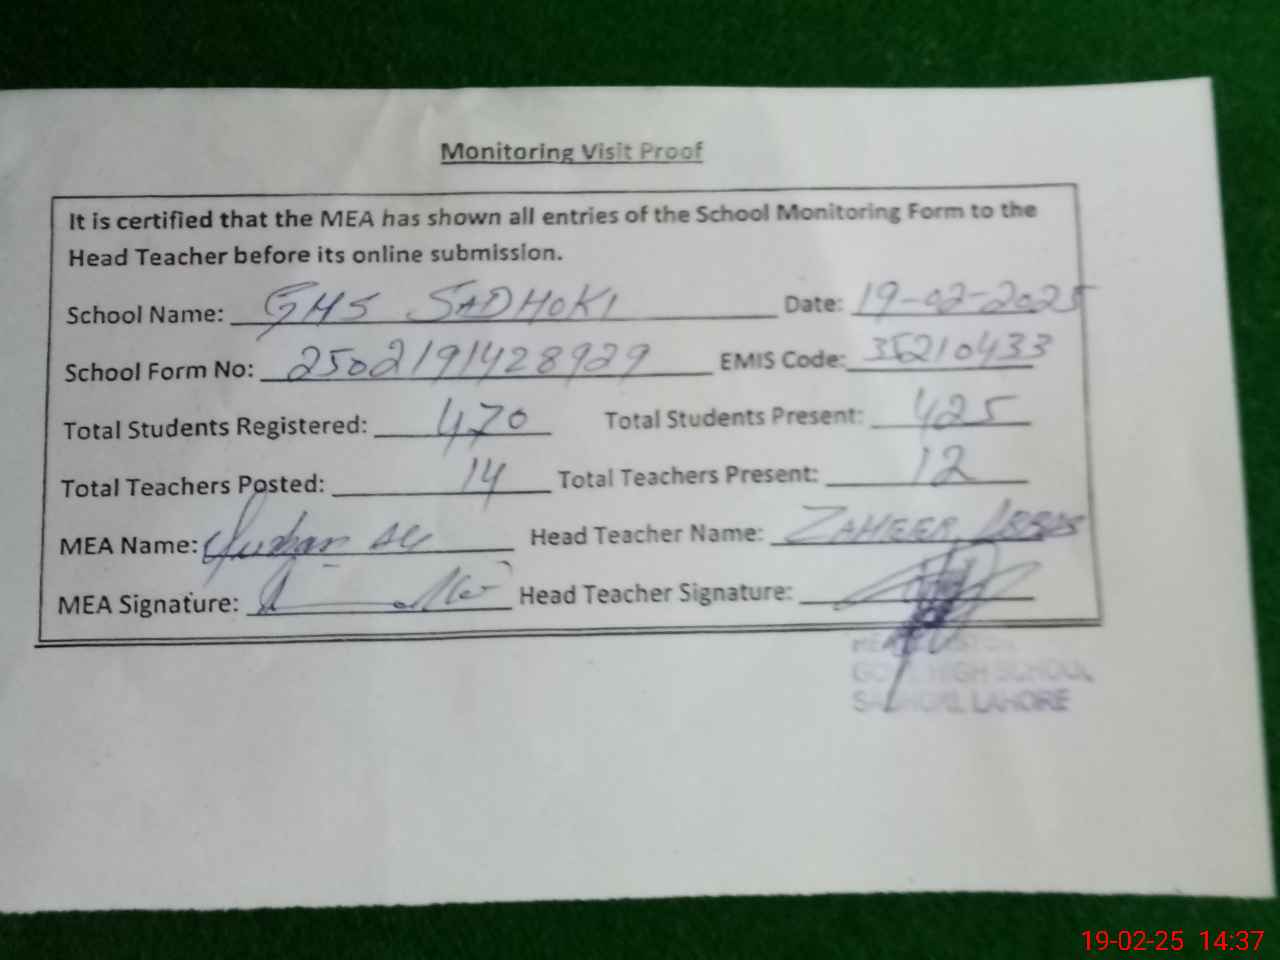 Monitoring Visit Proof
It is certified that the MEA has shown all entries of the School Monitoring Form to the
Head Teacher before its online submission.
School Name: GHS SADHOKI Date: 19-02-2025
School Form No: 2502191428929 EMIS Code: 35210433
Total Students Registered: 470 Total Students Present: 425
Total Teachers Posted: 14 Total Teachers Present: 12
MEA Name: Head Teacher Name: ZAHEER ABBAS
MEA Signature: Head Teacher Signature:
HIGH SCHOOL
LAHORE
19-02-25 14:37